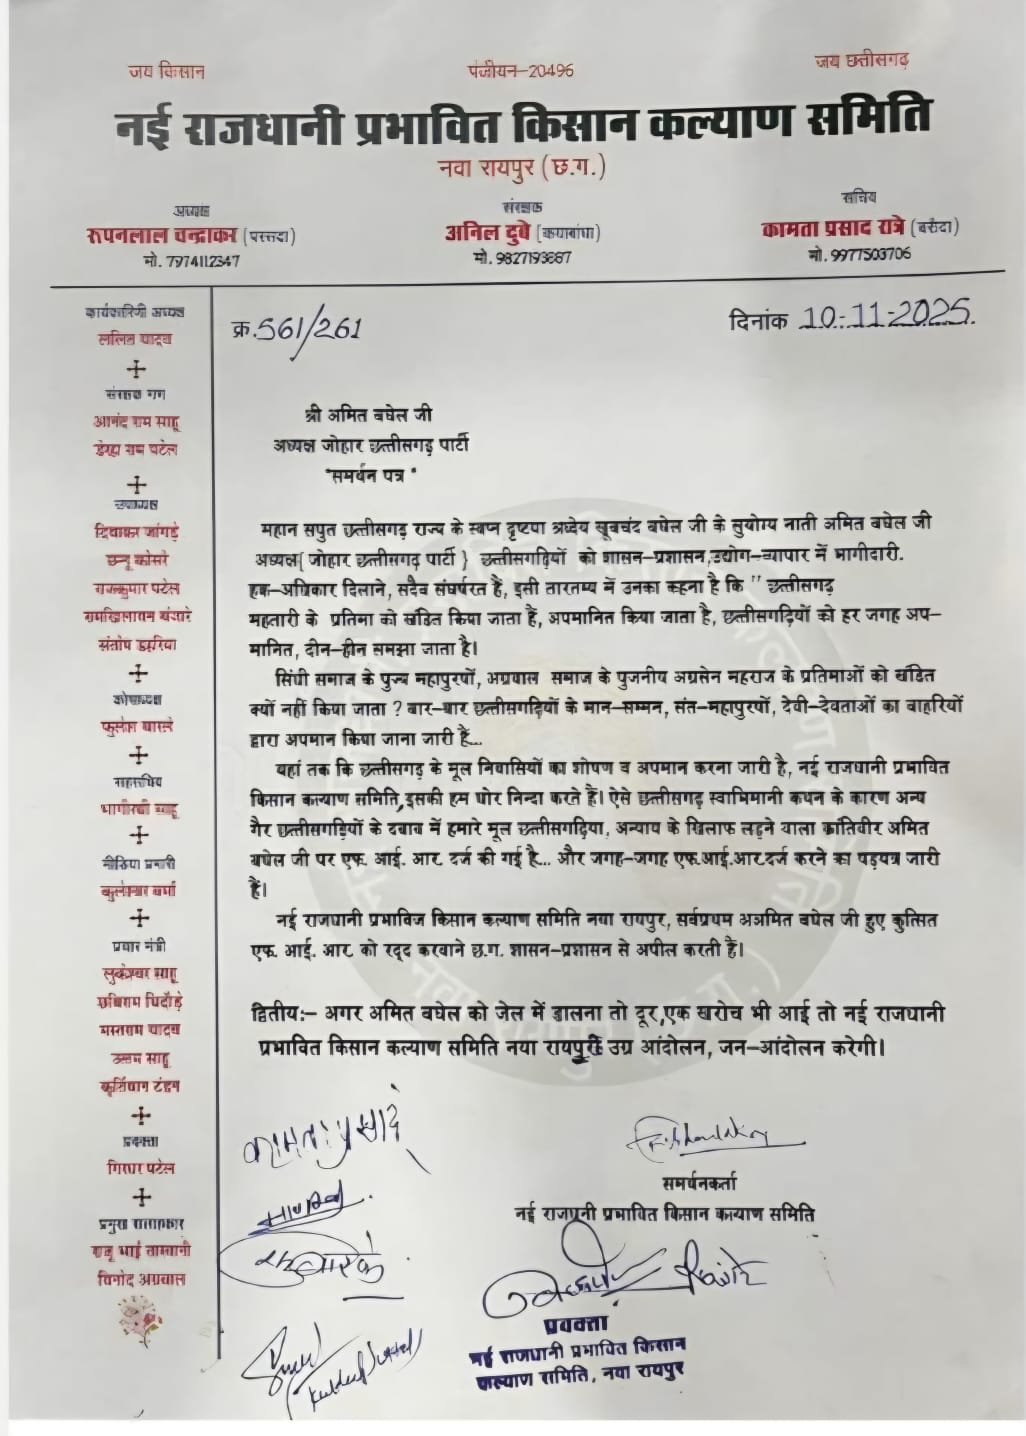 जय किसान
पंजीयन-20496
जय छत्तीसगढ़
नई राजधानी प्रभावित किसान कल्याण समिति
नवा रायपुर (छ.ग.)
अध्यक्ष
रुपनलाल चन्द्राकर (परसदा)
मो. 7974112347
संरक्षक
अनिल दुबे (कयाबांधा)
मो. 9827193887
सचिव
कामता प्रसाद रात्रे (बरौदा)
मो. 9977503706
कार्यकारिणी अध्यक्ष
ललित यादव
संरक्षक गण
आनंद राम साहू
डेरहा राम पटेल
उपाध्यक्ष
दिवाकर जांगड़े
छन्नू कोसरे
राजकुमार पटेल
रामखिलावन बंजारे
संतोष डहरिया
कोषाध्यक्ष
फुलेश बारले
सहसचिव
भागीरथी साहू
मीडिया प्रभारी
कुलेश्वर वर्मा
प्रचार मंत्री
लुकेश्वर साहू
छबिराम पिदौड़े
मस्तराम यादव
उत्तम साहू
कृर्तिपान टंडन
प्रवक्ता
गिरधर पटेल
प्रमुख सलाहकार
राजू भाई तासवानी
विनोद अग्रवाल
क्र. 561/261
दिनांक 10-11-2025
श्री अमित बघेल जी
अध्यक्ष जोहार छत्तीसगढ़ पार्टी
"समर्थन पत्र "
महान सपुत छत्तीसगढ़ राज्य के स्वप्न दृष्टया श्रध्देय खूबचंद बघेल जी के सुयोग्य नाती अमित बघेल जी
अध्यक्ष{ जोहार छत्तीसगढ़ पार्टी } छत्तीसगढ़ियों को शासन-प्रशासन,उद्योग-व्यापार में भागीदारी.
हक-अधिकार दिलाने, सदैव संघर्षरत हैं, इसी तारतम्य में उनका कहना है कि " छत्तीसगढ़
महतारी के प्रतिमा को खंडित किया जाता हैं, अपमानित किया जाता है, छत्तीसगढ़ियों को हर जगह अप-
मानित, दीन-हीन समझा जाता है।
सिंधी समाज के पुज्य महापुरषों, अग्रवाल समाज के पुजनीय अग्रसेन महराज के प्रतिमाओं को खंडित
क्यों नहीं किया जाता ? बार-बार छत्तीसगढ़ियों के मान-सम्मन, संत-महापुरषों, देवी-देवताओं का बाहरियों
द्वारा अपमान किया जाना जारी हैं...
यहां तक कि छत्तीसगढ़ के मूल निवासियों का शोषण व अपमान करना जारी है, नई राजधानी प्रभावित
किसान कल्याण समिति,इसकी हम घोर निन्दा करते हैं। ऐसे छत्तीसगढ़ स्वाभिमानी कथन के कारण अन्य
गैर छत्तीसगढ़ियों के दबाव में हमारे मूल छत्तीसगढ़िया, अन्याय के खिलाफ लड़ने वाला क्रांतिवीर अमित
बघेल जी पर एफ. आई. आर. दर्ज की गई है... और जगह-जगह एफ.आई.आर.दर्ज करने का षड़यत्र जारी
हैं।
नई राजधानी प्रभाविज किसान कल्याण समिति नवा रायपुर, सर्वप्रथम अअमित बघेल जी हुए कुत्सित
एफ. आई. आर. को रद्द करवाने छ.ग. शासन-प्रशासन से अपील करती हैं।
द्वितीय:- अगर अमित बघेल को जेल में डालना तो दूर,एक खरोच भी आई तो नई राजधानी
प्रभावित किसान कल्याण समिति नवा रायपुर उग्र आंदोलन, जन-आंदोलन करेगी।
कामता प्रसाद
समर्थनकर्ता
नई राजधानी प्रभावित किसान कल्याण समिति
प्रवक्ता
नई राजधानी प्रभावित किसान
कल्याण समिति, नवा रायपुर